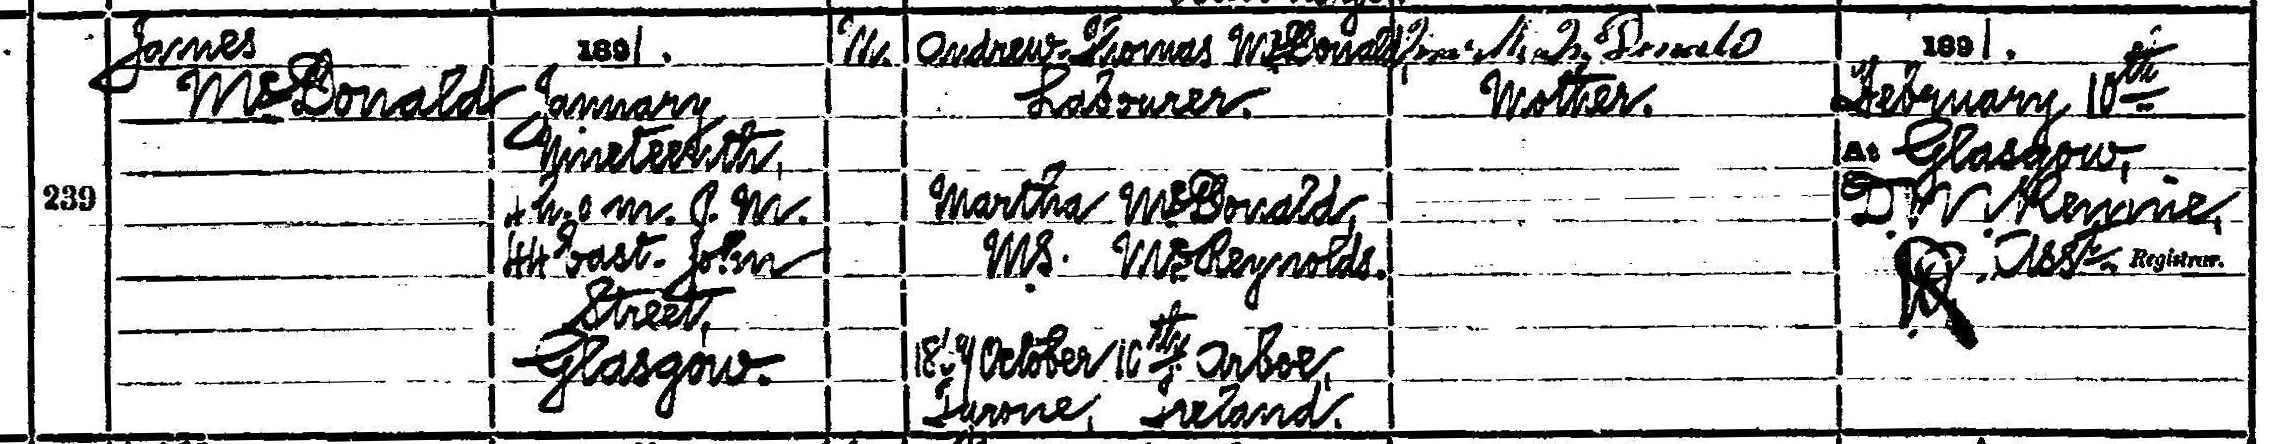 239
James
McDonald
1891.
January
Nineteenth,
4 h. 0 m. P. M.
44 East John
Street,
Glasgow.
M.
Andrew Thomas McDonald,
Labourer.
Martha McDonald,
MS. McReynolds.
October 10th Arboe,
Tyrone, Ireland.
Mother.
1891.
February 10th
At Glasgow,
D. W. Rennie,
Asst. Registrar.